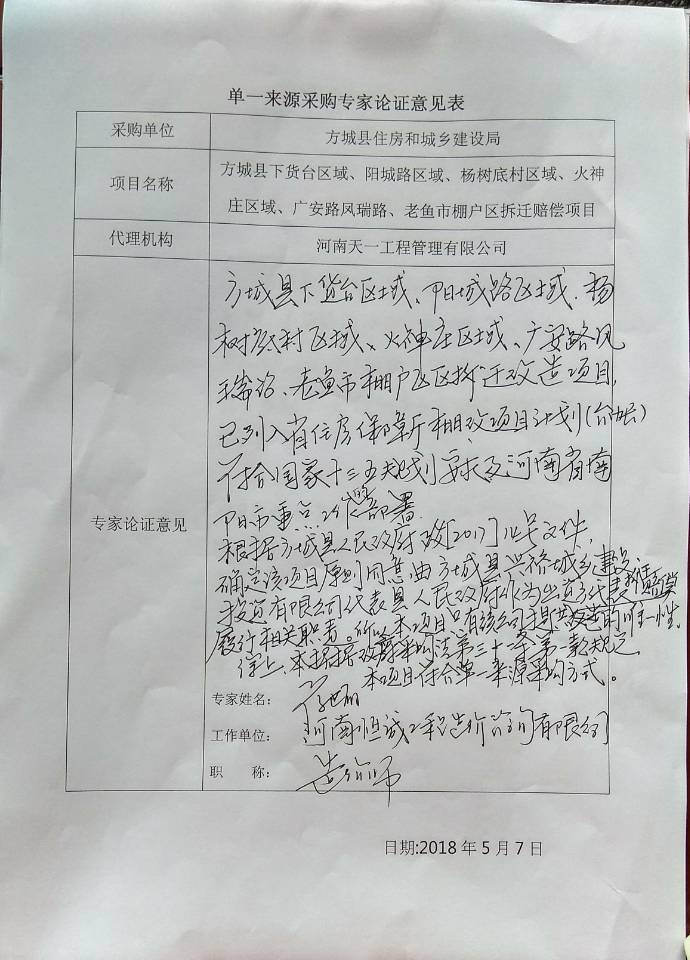 单一来源采购专家论证意见表
采购单位
方城县住房和城乡建设局
项目名称
方城县下货台区域、阳城路区域、杨树底村区域、火神
庄区域、广安路风瑞路、老鱼市棚户区拆迁赔偿项目
代理机构
河南天一工程管理有限公司
专家论证意见
方城县下货台区域、阳城路区域、杨
树底村区域、火神庄区域、广安路风
瑞路、老鱼市棚户区拆迁改造项目,
已列入省住房保障厅棚改项目计划
符合国家十三五规划要求及河南省南
阳市重点工作部署
根据方城县人民政府 [2017] 号文件,
确定该项目原则同意由方城县兴裕城乡建设
投资有限公司代表县人民政府作为出资方代表
履行相关职责。所以本项目只有该公司 唯一性。
综上,本 根据政府采购法第三十一条第一款规定,
本项目符合单一来源采购方式。
专家姓名:
工作单位: 河南恒诚工程造价咨询有限公司
职 称: 造价师
日期:2018 年 5 月 7 日